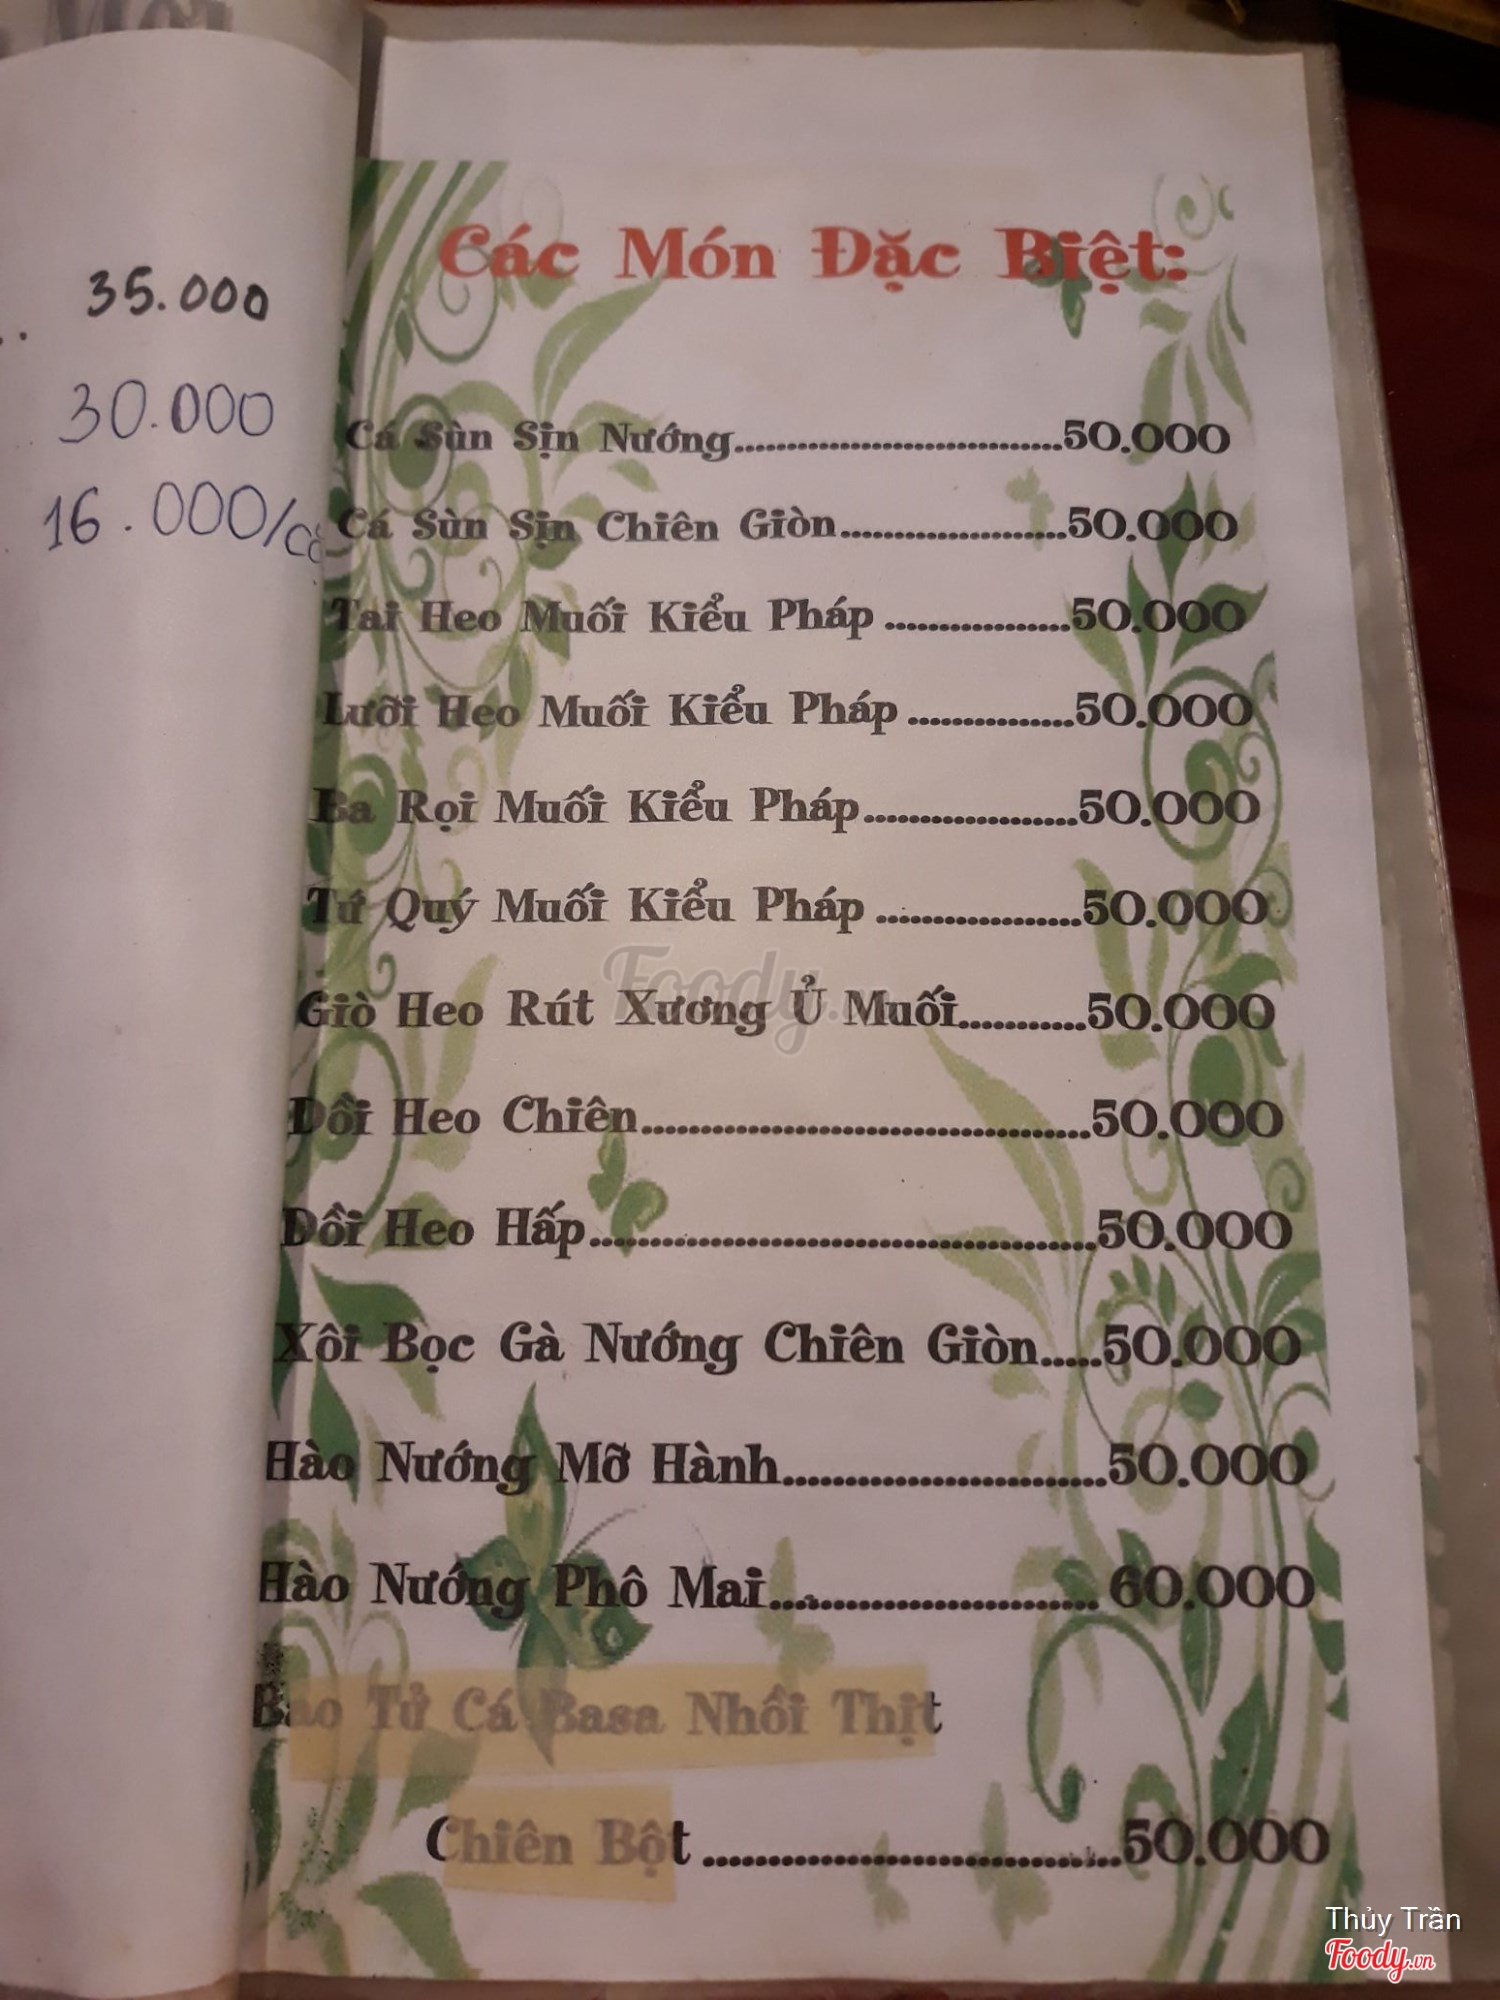 35.000
30.000
16.000/
Các Món Đặc Biệt:
Cá Sùn Sịn Nướng..............................50.000
Cá Sùn Sịn Chiên Giòn.....................50.000
Tai Heo Muối Kiểu Pháp .................50.000
Lưỡi Heo Muối Kiểu Pháp ...............50.000
Ba Rọi Muối Kiểu Pháp...................50.000
Tứ Quý Muối Kiểu Pháp ..................50.000
Giò Heo Rút Xương Ủ Muối...........50.000
Dồi Heo Chiên......................................50.000
Dồi Heo Hấp..........................................50.000
Xôi Bọc Gà Nướng Chiên Giòn.....50.000
Hào Nướng Mỡ Hành..........................50.000
Hào Nướng Phô Mai.......................... 60.000
Bao Tử Cá Basa Nhồi Thịt
Chiên Bột ................................50.000
Foody.vn
Thủy Trần
Foody.vn